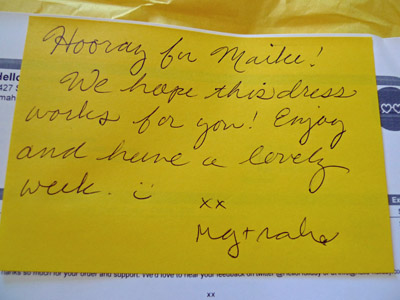 Hooray for Maike!
We hope this dress
works for you! Enjoy
and have a lovely
week. :)
xx
Hello
427 S
mah
anks so much for your order and support. We'd love to hear your feedback on twitter
xx